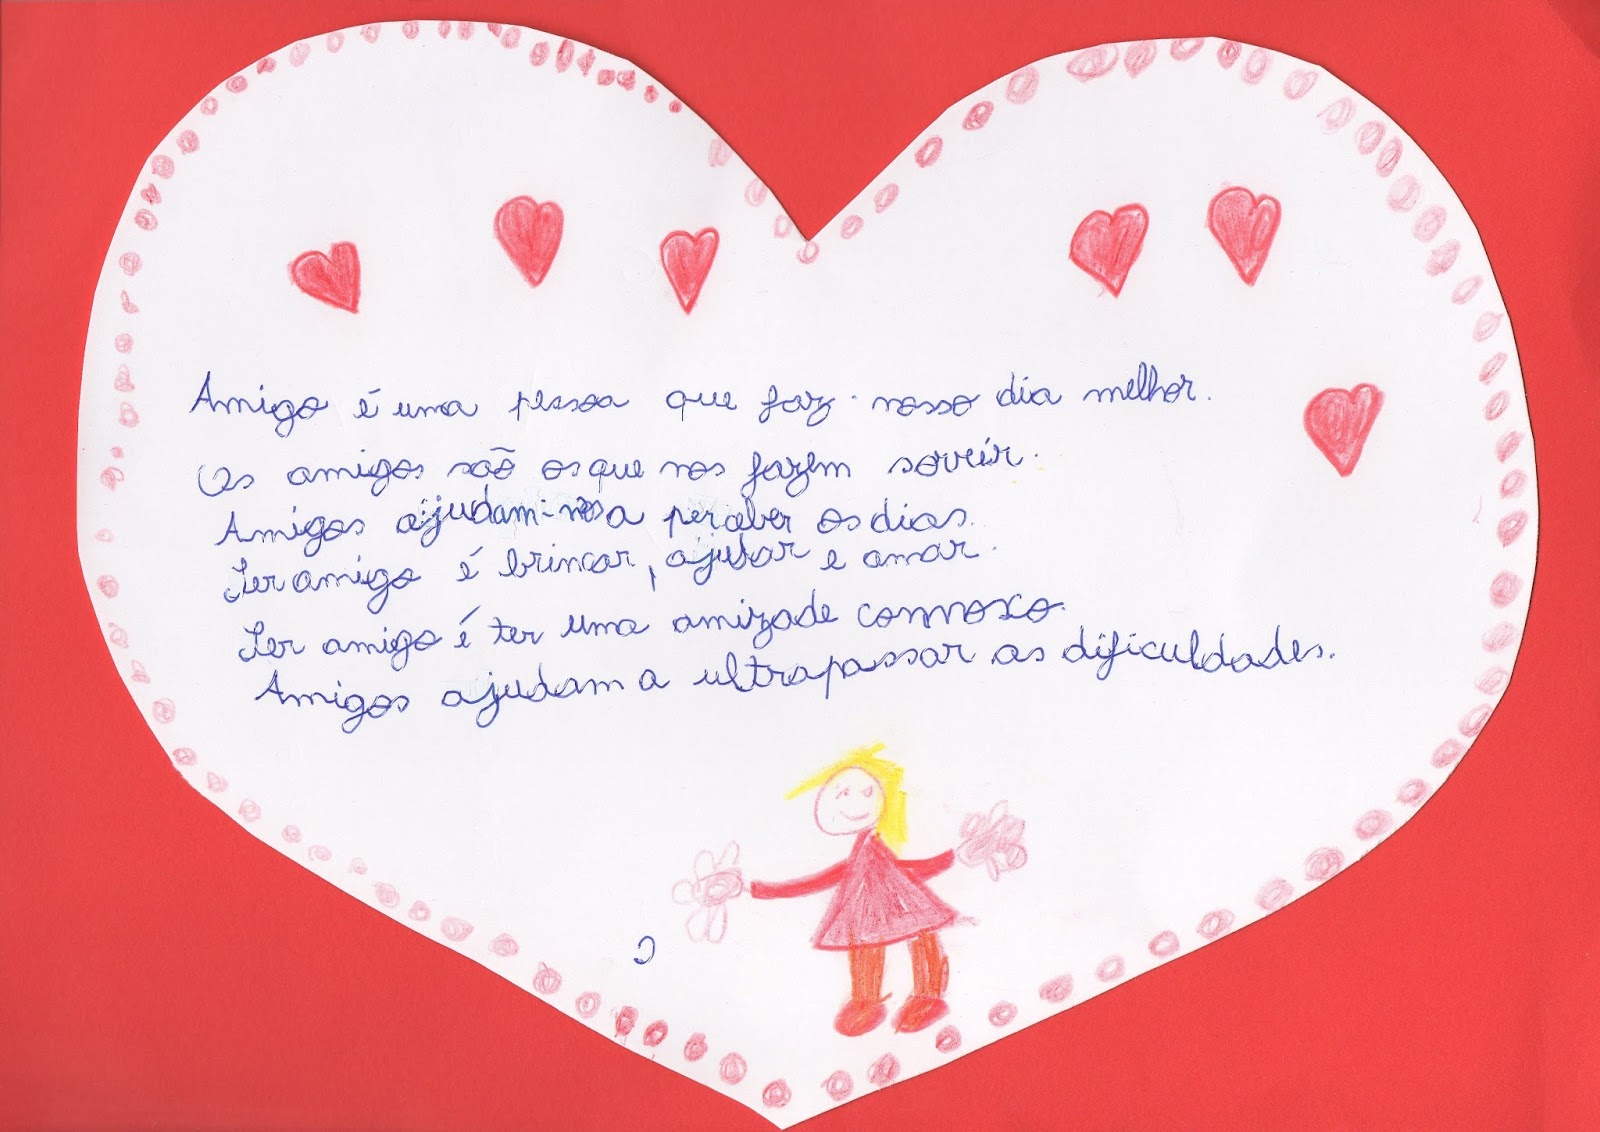 Amigo é uma pessoa que faz nosso dia melhor.
Os amigos saõ os que nos fazem sorrir.
Amigos ajudam-nos a perceber os dias.
Ser amigo é brincar, ajudar e amar.
Ser amigo é ter uma amizade connosco.
Amigos ajudam a ultrapassar as dificuldades.